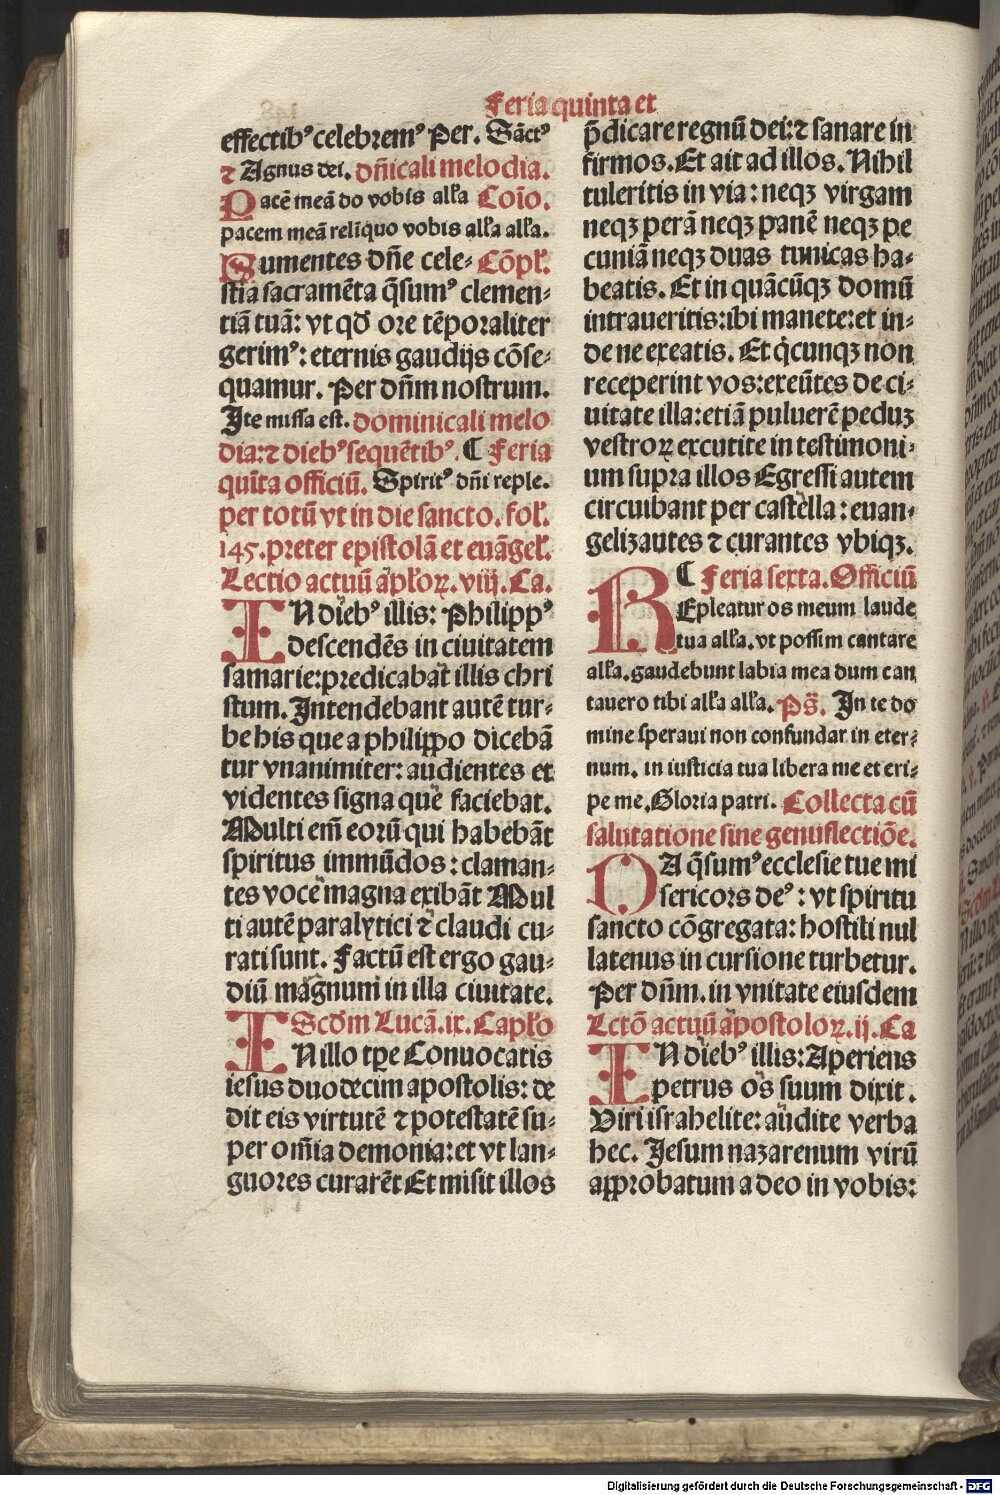 Feria quinta et
effectibꝰ celebremꝰ Per. Sāctꝰ
⁊ Agnus dei. dn̄icali melodia.
Pacē meā do vobis alľa Coīo.
pacem meā relīquo vobis alľa alľa.
Sumentes dn̄e cele- Cōpľ.
stia sacramēta q̄sumꝰ clemen-
tiā tuā: vt qď ore tēporaliter
gerimꝰ: eternis gaudijs cōse-
quamur. Per dn̄m nostrum.
Ite missa est. dominicali melo
dia: ⁊ diebꝰ sequētibꝰ. ¶ Feria
quīta officiū. Spiritꝰ dn̄i reple.
per totū vt in die sancto. foľ.
145. preter epistolā et euāgeľ.
Lectio actuū apľoꝝ. viij. Ca.
IN diebꝰ illis: Philippꝰ
descendēs in ciuitatem
samarie: predicabat illis chri
stum. Intendebant autē tur-
be his que a philippo dicebā
tur vnanimiter: audientes et
videntes signa que faciebat.
Multi em̄ eorū qui habebāt
spiritus immūdos: claman-
tes voce magna exibāt Mul
ti autē paralytici ⁊ claudi cu-
rati sunt. Factū est ergo gau-
diū magnum in illa ciuitate.
Scďm Lucā. ix. Capľo
IN illo tꝑe Conuocatis
iesus duodecim apostolis: de
dit eis virtutē ⁊ potestatē su-
per om̄ia demonia: et vt lan-
guores curarēt Et misit illos
p̄dicare regnū dei: ⁊ sanare in
firmos. Et ait ad illos. Nihil
tuleritis in via: neqꝫ virgam
neqꝫ perā neqꝫ panē neqꝫ pe
cuniā neqꝫ duas tunicas ha-
beatis. Et in quācūqꝫ domū
intraueritis: ibi manete: et in-
de ne exeatis. Et q̇cunqꝫ non
receperint vos: exeūtes de ci-
uitate illa: etiā puluerē peduꝫ
vestroꝝ excutite in testimoni-
um supra illos Egressi autem
circuibant per castella: euan-
gelizautes ⁊ curantes vbiqꝫ.
¶ Feria sexta. Officiū
REpleatur os meum laude
tua alľa. vt possim cantare
alľa. gaudebunt labia mea dum can
tauero tibi alľa alľa. Ps̄. In te do
mine speraui non confundar in eter-
num. in iusticia tua libera me et eri-
pe me. Gloria patri. Collecta cū
salutatione sine genuflectiōe.
DA q̄sumꝰ ecclesie tue mi
sericors deꝰ: vt spiritu
sancto cōgregata: hostili nul
latenus in cursione turbetur.
Per dn̄m. in vnitate eiusdem
Lctō actuū apostoloꝝ. ij. Ca
IN diebꝰ illis: Aperiens
petrus os suum dixit.
Viri israhelite: audite verba
hec. Jesum nazarenum virū
approbatum a deo in vobis:
Digitalisierung gefördert durch die Deutsche Forschungsgemeinschaft - DFG